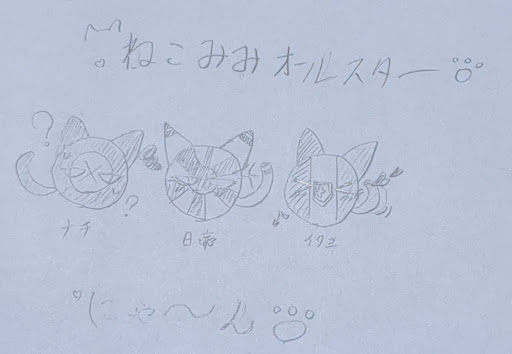 ねこみみオールスター
? ?
ナチ 日帝 イタ王
にゃ〜ん